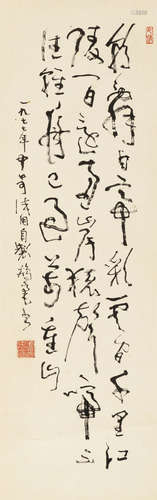 朝辞白帝彩云间千里江
陵一日还两岸猿声啼不
住轻舟已过万重山
一九七七年